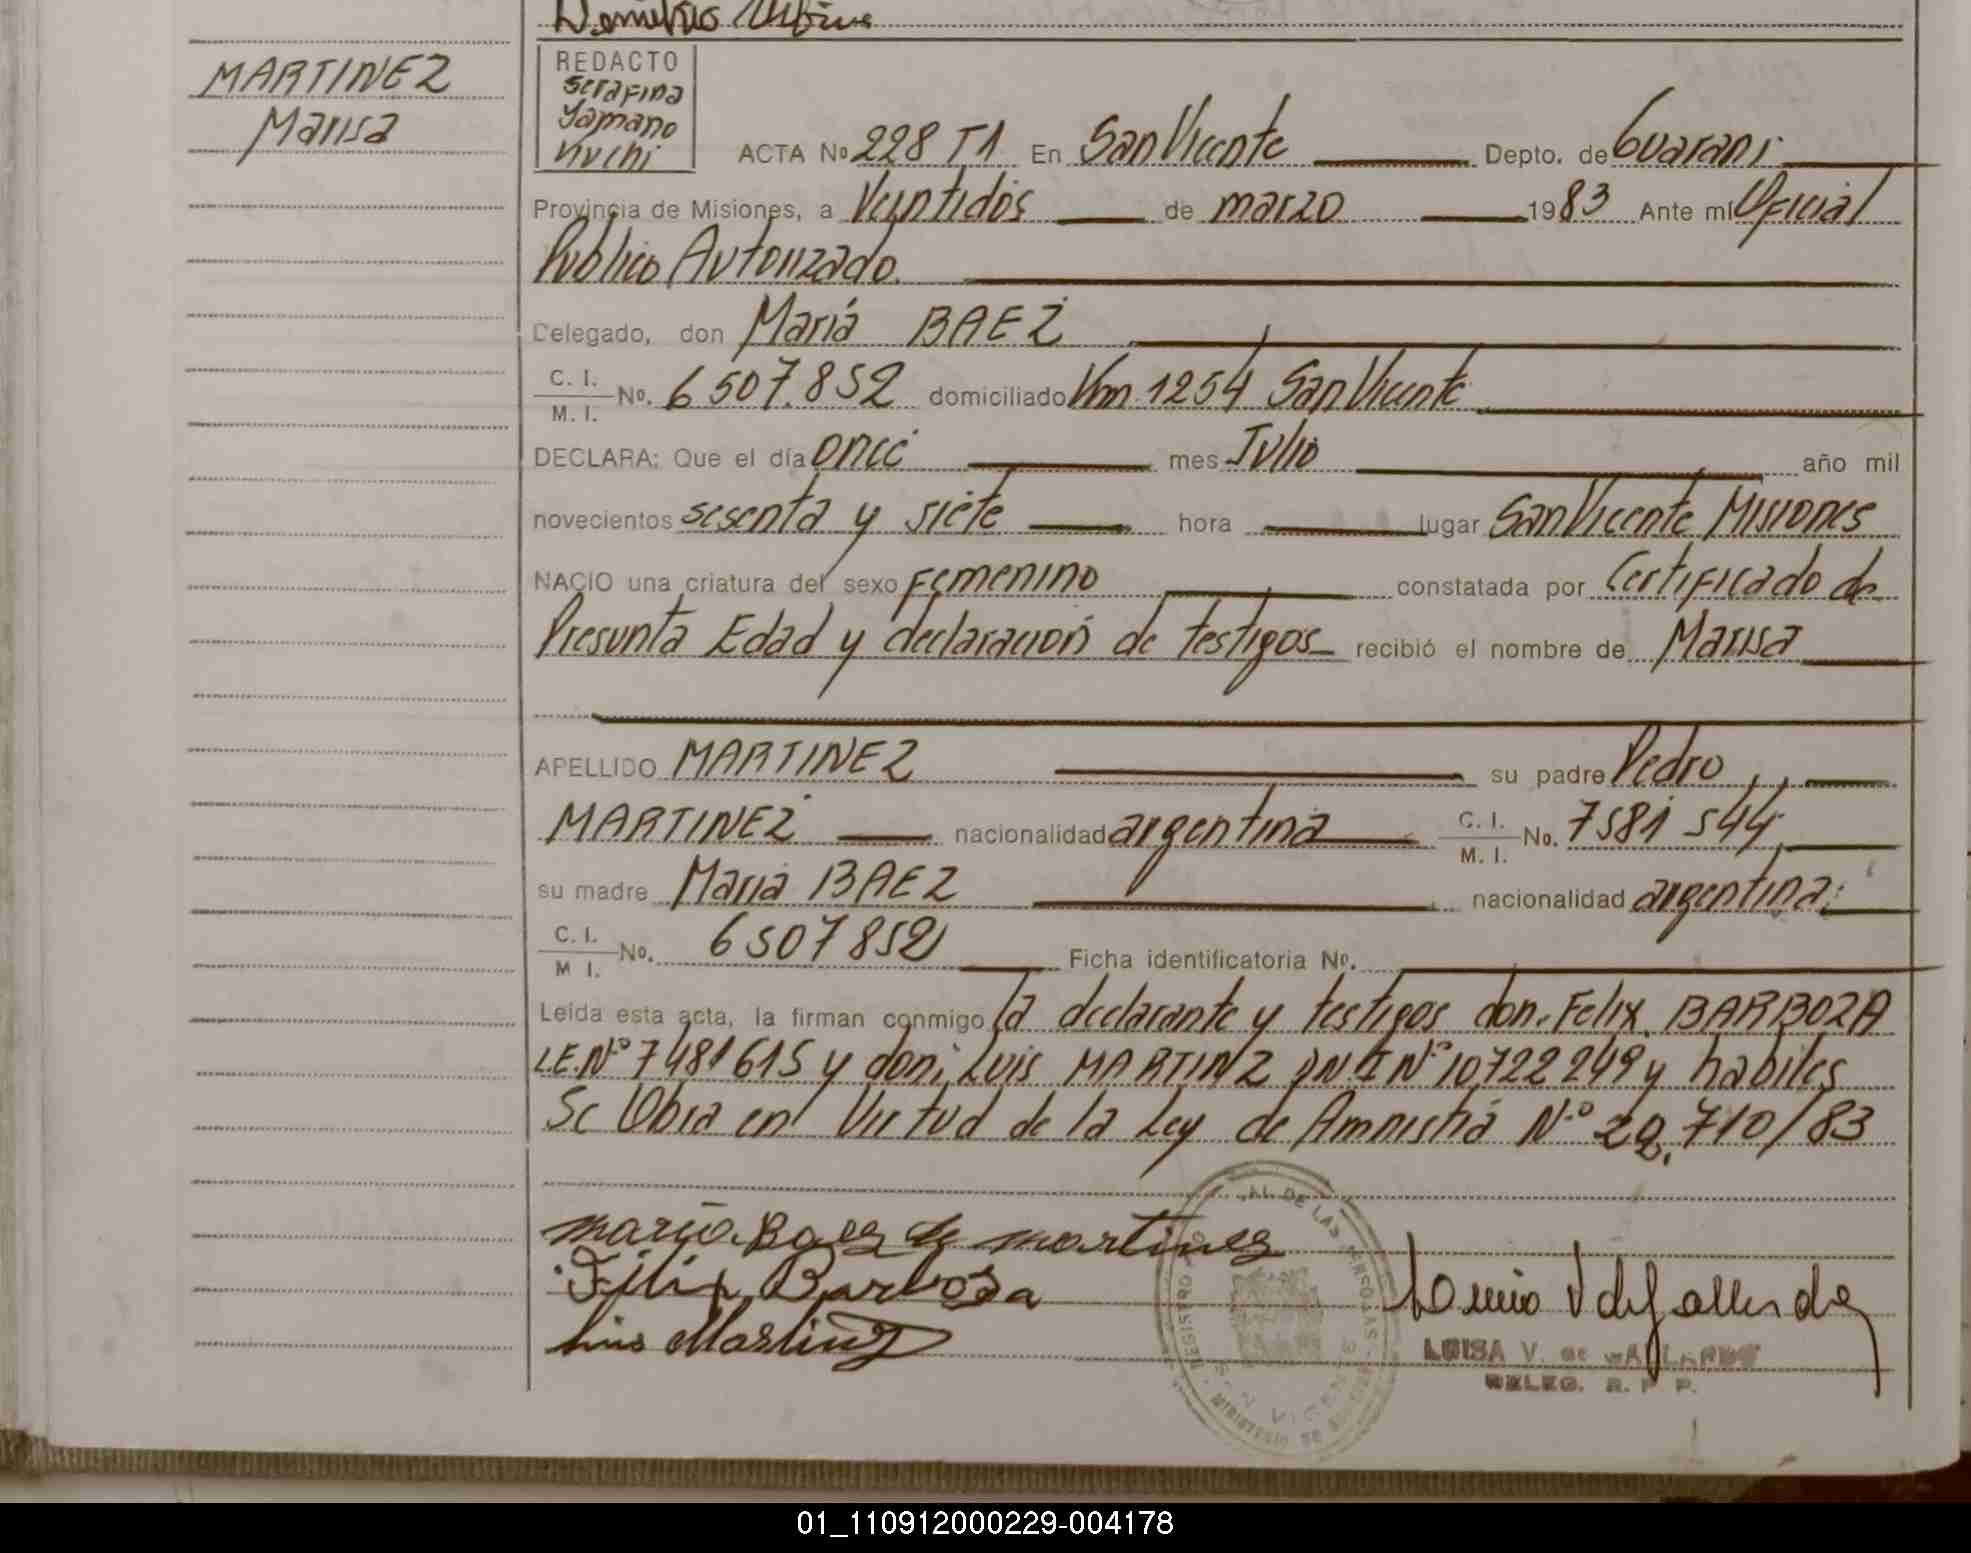 MARTINEZ
Marisa
REDACTO
Serafina
Yamano
Kuchi
ACTA Nº 228 T1 En San Vicente Depto. de Guarani
Provincia de Misiones, a Veintidós de marzo 1983 Ante mí Oficial
Publico Autorizado.
Delegado, don Mariá BAEZ
C. I. / M. I. No. 6 507.852 domiciliado Km 1254 San Vicente
DECLARA: Que el día once mes Julio año mil
novecientos sesenta y siete hora lugar San Vicente Misiones
NACIO una criatura del sexo Femenino constatada por Certificado de
Presunta Edad y declaración de testigos recibió el nombre de Marisa
APELLIDO MARTINEZ su padre Pedro
MARTINEZ nacionalidad argentina C. I. / M. I. No. 7581 544
su madre Maria BAEZ nacionalidad argentina
C. I. / M I. No. 6507852 Ficha identificatoria Nº.
Leída esta acta, la firman conmigo la declarante y testigos don Felix BARBOZA
L.E.Nº 7481615 y don Luis MARTINZ DNI Nº 10722249 y habiles
Se Obra en Virtud de la Ley de Amnistiá Nº 22.710/83
maria Baez de martinez
Felix Barboza
Luis Martinez
LUISA V. DE GALLARDO
DELEG. R. P P.
01_110912000229-004178